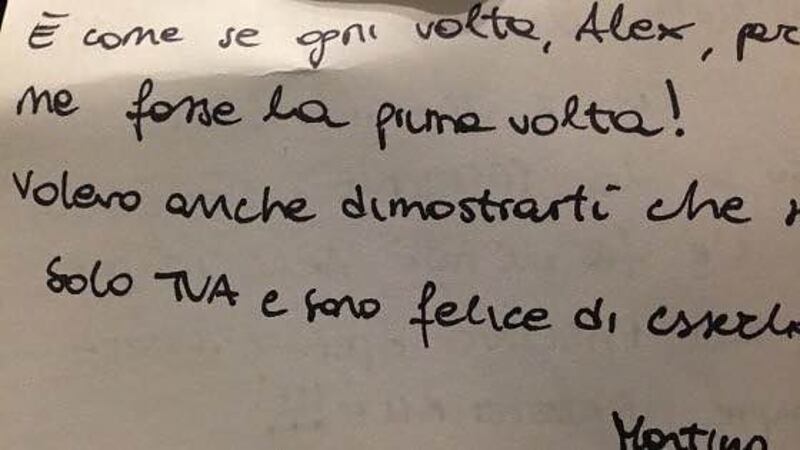 È come se ogni volta, Alex, per
me fosse la prima volta!
Volevo anche dimostrarti che
solo TUA e sono felice di esserlo